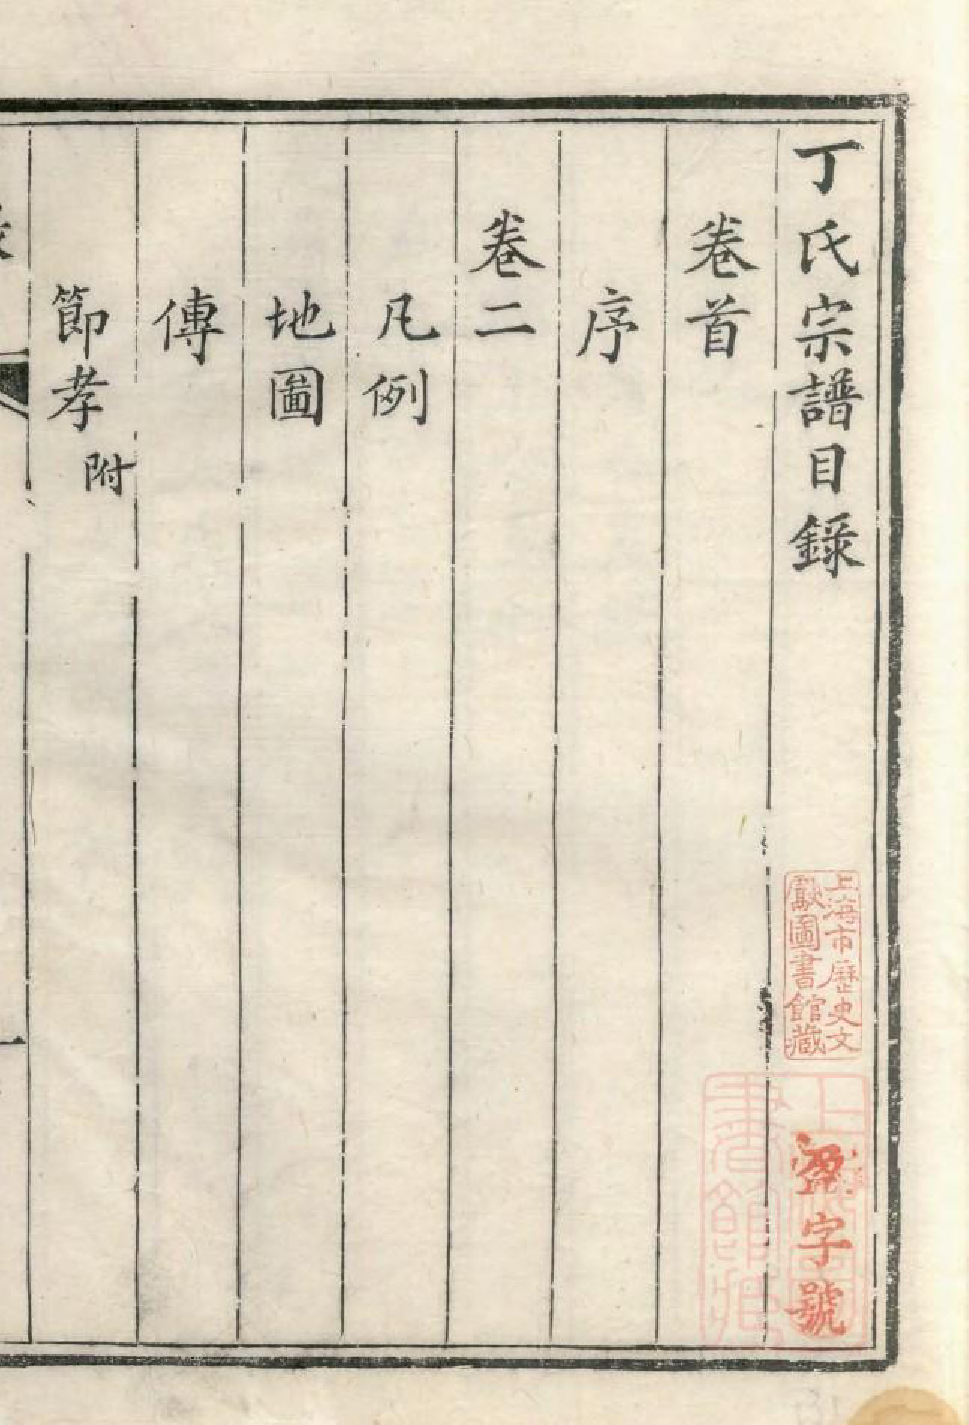 丁氏宗譜目錄
卷首
序
卷二
凡例
地圖
傳
節孝附
上海市歷史文
獻圖書館藏
字號
上海圖
書館藏